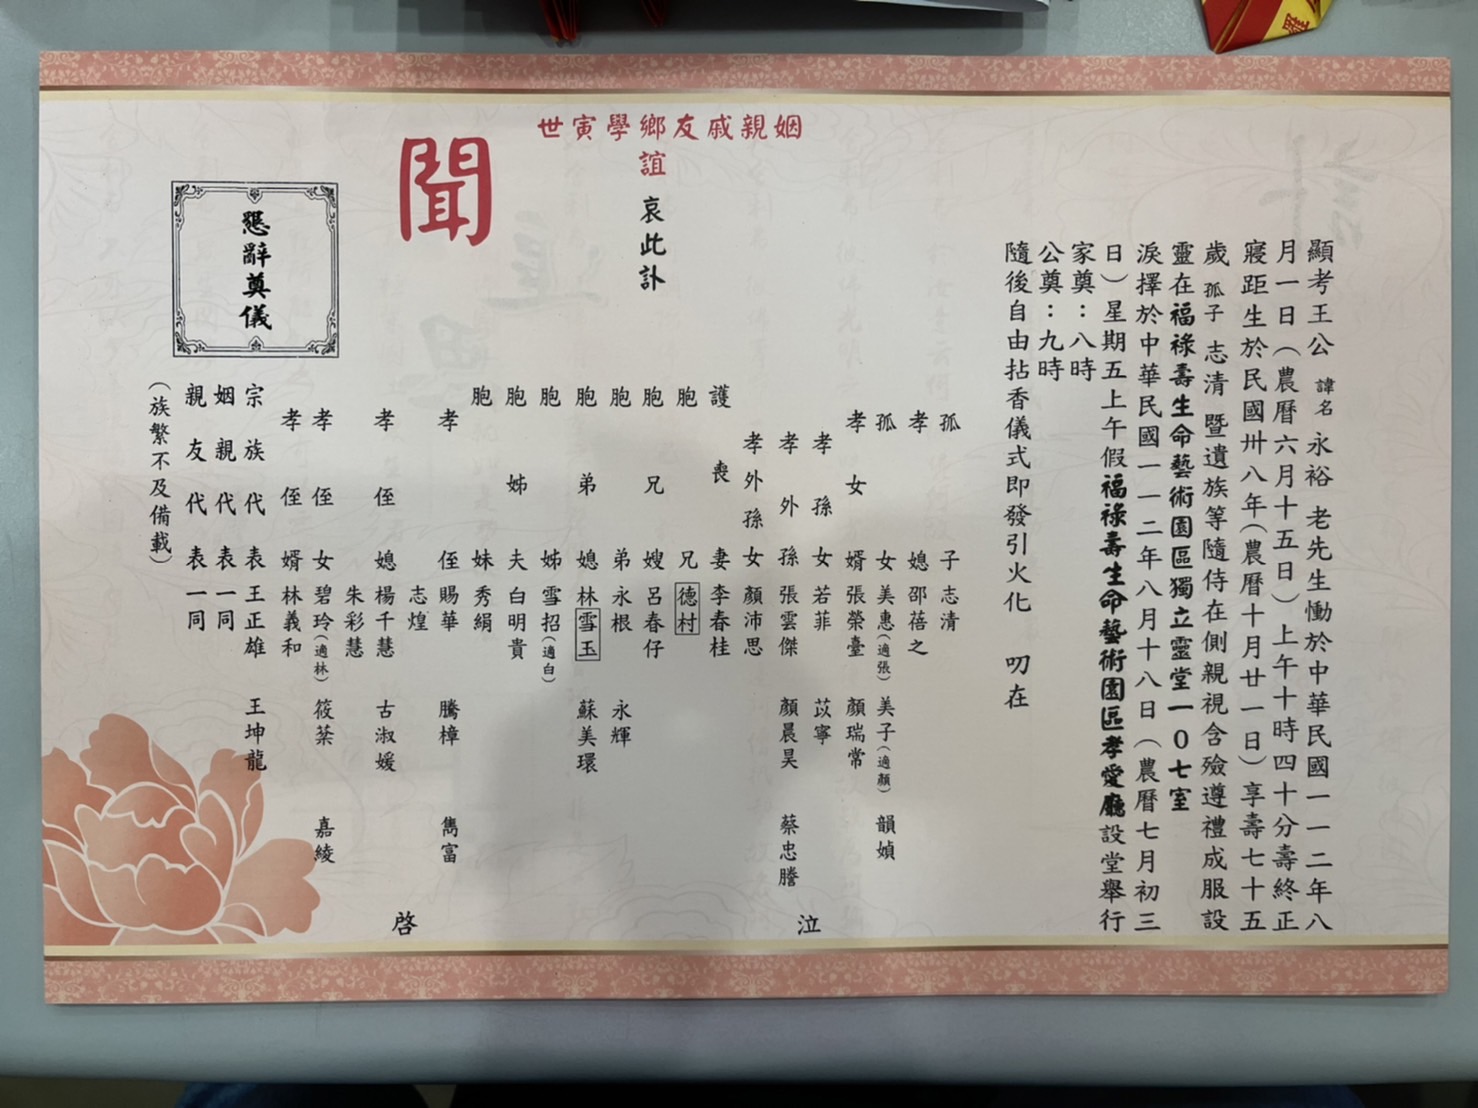 顯考王公 諱名 永裕 老先生慟於中華民國一一二年八
月一日（農曆六月十五日）上午十時四十分壽終正
寢距生於民國卅八年（農曆十月廿一日）享壽七十五
歲 孤子 志清 暨遺族等隨侍在側親視含殮遵禮成服設
靈在福祿壽生命藝術園區獨立靈堂一0七室
淚擇於中華民國一一二年八月十八日（農曆七月初三
日）星期五上午假福祿壽生命藝術園區孝愛廳設堂舉行
家奠：八時
公奠：九時
隨後自由拈香儀式即發引火化 叨在
姻親戚友鄉學寅世
誼
哀此訃
聞
孤子 志清
孝媳 邵蓓之
孤女 美惠（適張） 美子（適顏） 韻媜
孝女婿 張榮臺 顏瑞常
孝孫女 若菲 苡寧
孝外孫 張雲傑 顏晨昊 蔡忠謄
孝外孫女 顏沛思
護喪妻 李春桂
胞兄 德村
胞兄嫂 呂春仔
胞弟 永根 永輝
胞弟媳 林雪玉 蘇美環
胞姊 雪招（適白）
胞姊夫 白明貴
胞妹 秀絹
孝侄 賜華 騰樟 雋富
志煌
孝侄媳 楊千慧 古淑媛
朱彩慧
孝侄女 碧玲（適林） 筱棻 嘉綾
孝侄婿 林義和
宗族代表 王正雄 王坤龍
姻親代表一同
親友代表一同
（族繁不及備載）
泣
啓
懇辭奠儀